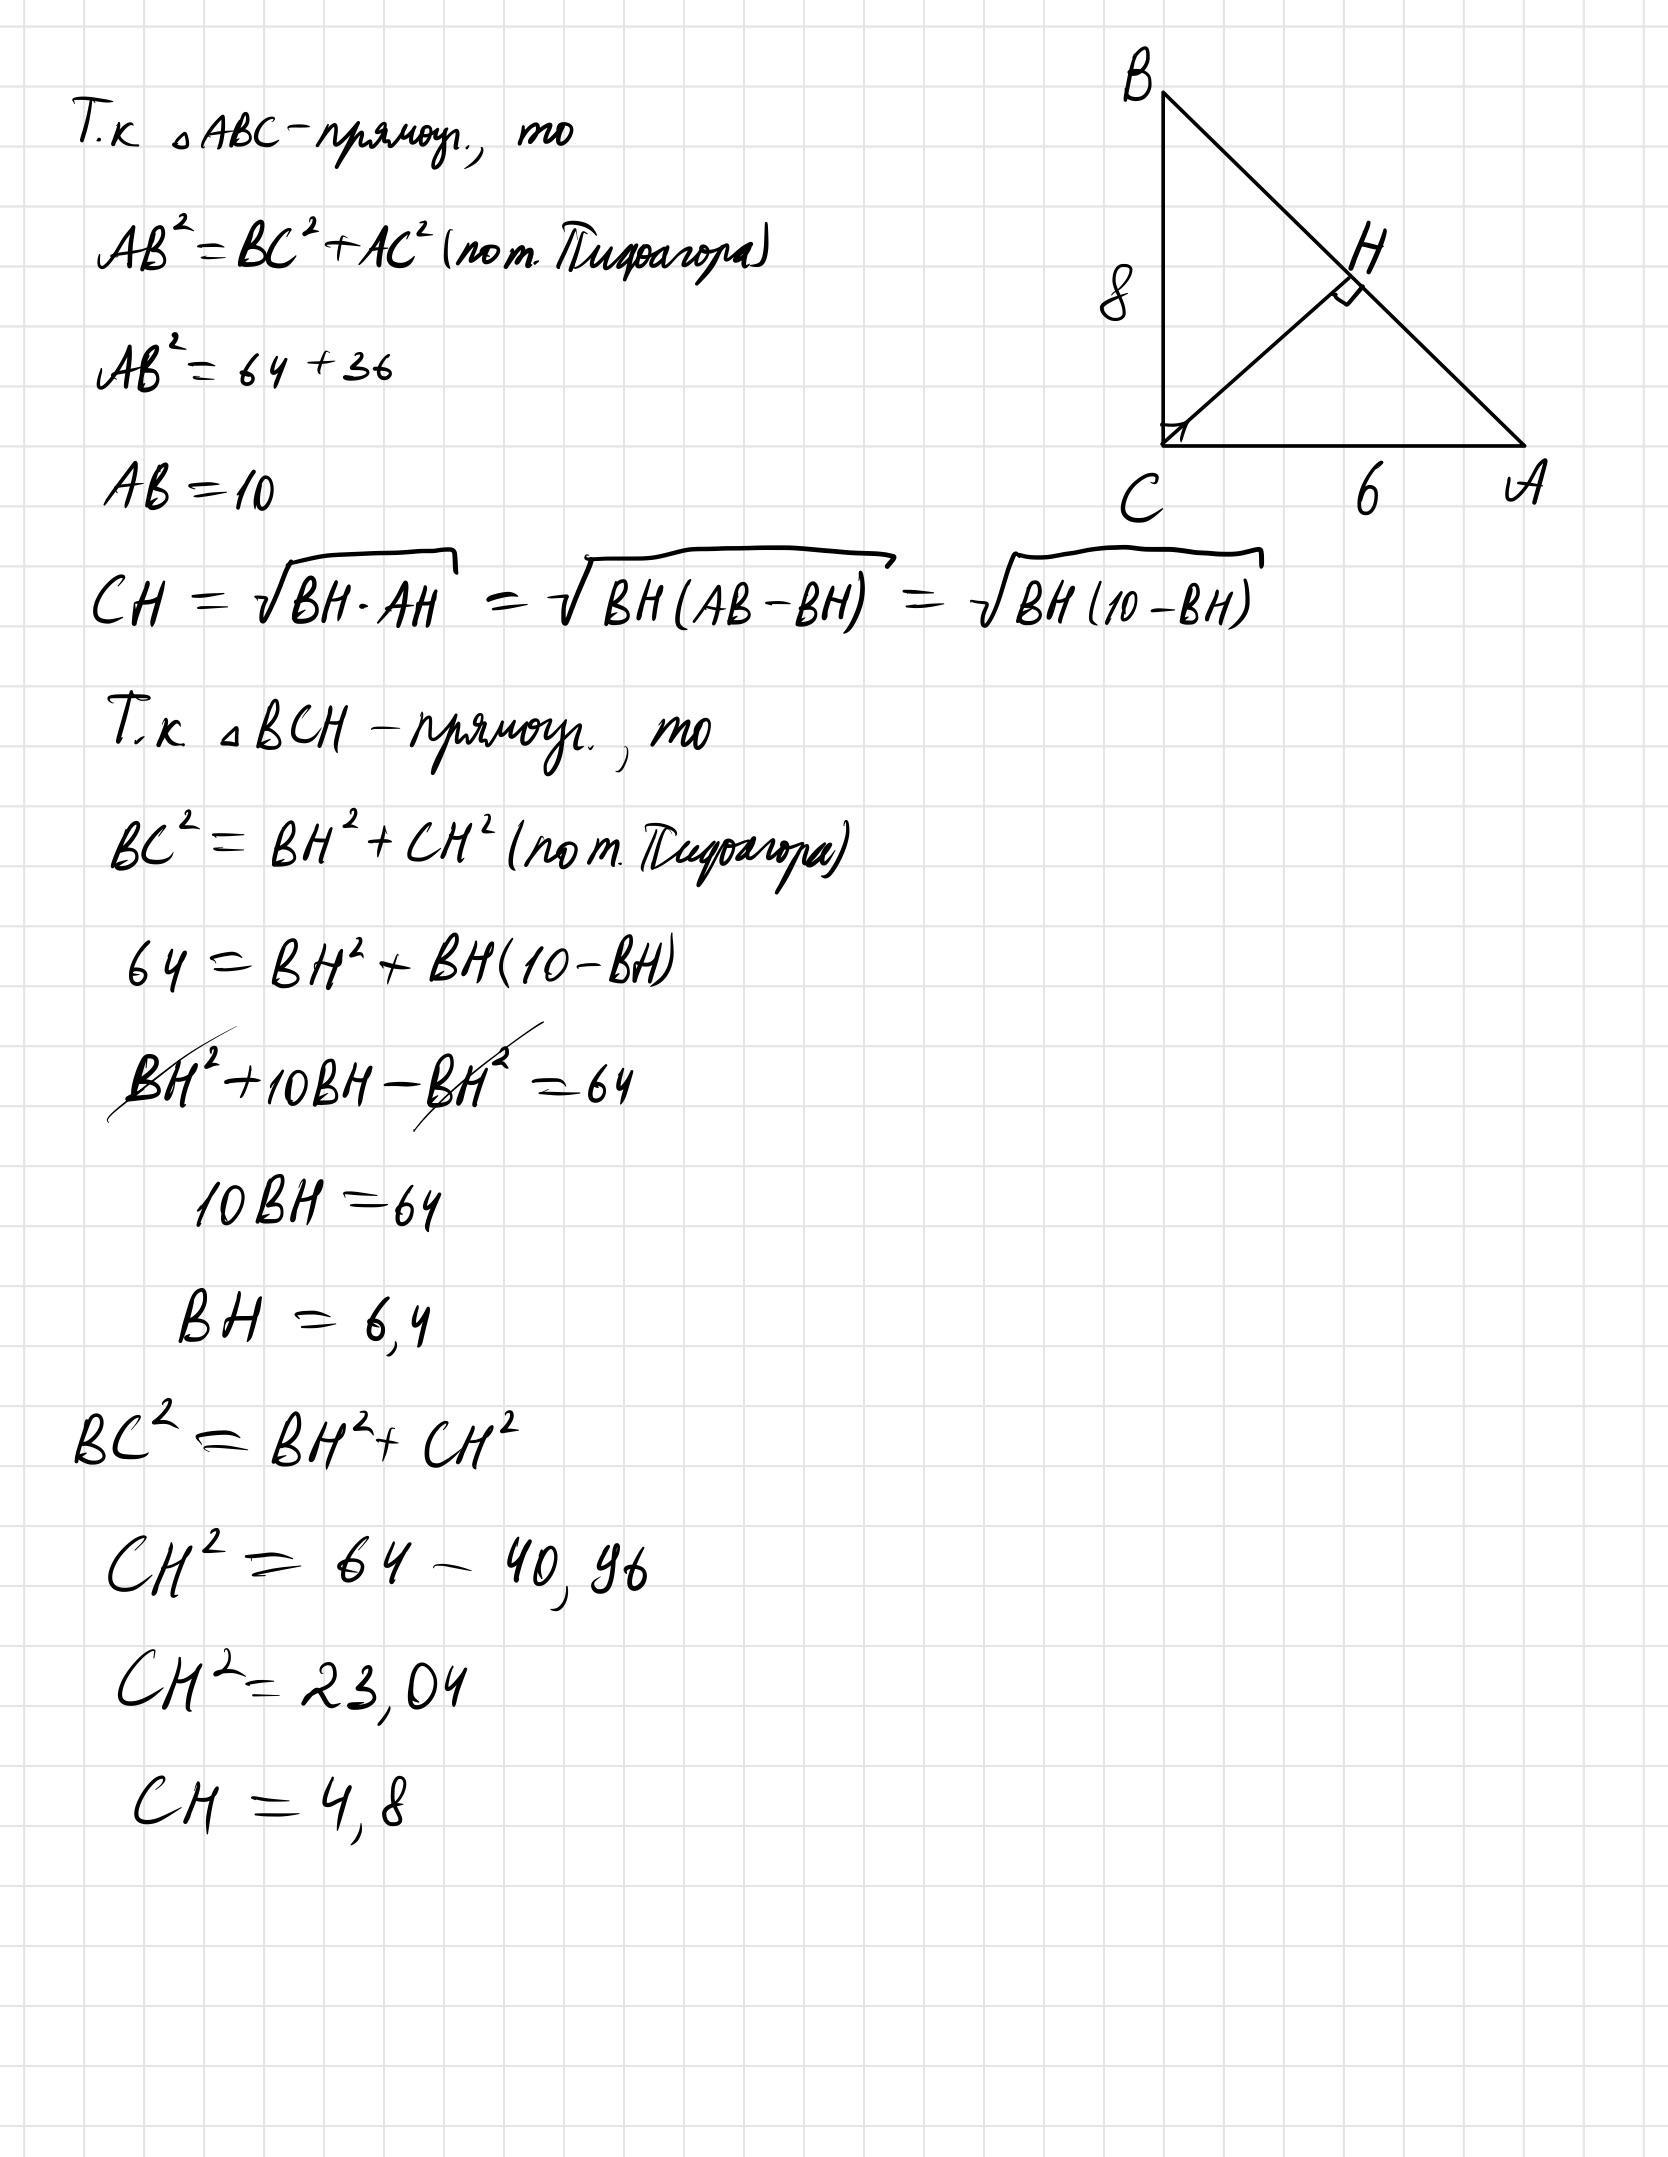 Т.к △ABC - прямоуг., то
AB² = BC² + AC² (по т. Пифагора)
AB² = 64 + 36
AB = 10
CH = √(BH · AH) = √(BH(AB - BH)) = √(BH(10 - BH))
Т.к. △BCH - прямоуг., то
BC² = BH² + CH² (по т. Пифагора)
64 = BH² + BH(10 - BH)
BH² + 10BH - BH² = 64
10BH = 64
BH = 6,4
BC² = BH² + CH²
CH² = 64 - 40,96
CH² = 23,04
CH = 4,8
B
H
8
C
6
A